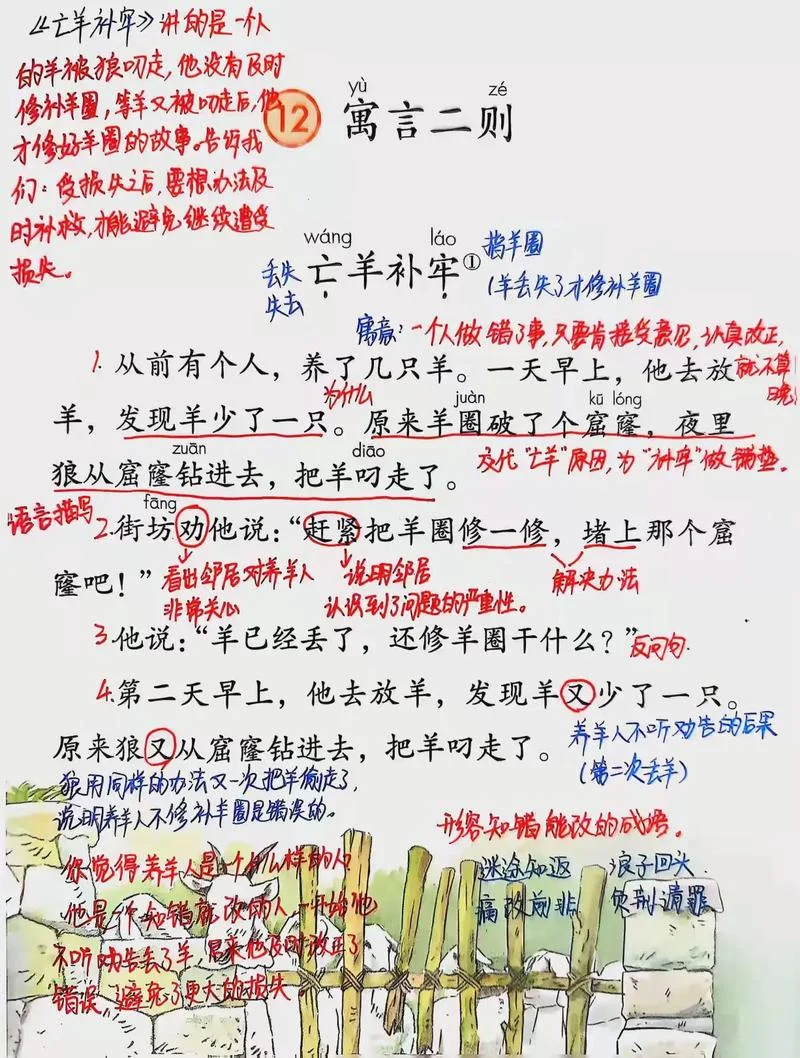 《亡羊补牢》讲的是一个人
的羊被狼叼走,他没有及时
修补羊圈,等羊又被叼走后,他
才修好羊圈的故事。告诉我
们:受损失之后,要想办法及
时补救,才能避免继续遭受
损失。
yù zé
12 寓言二则
wáng láo
亡羊补牢①
丢失
失去
指羊圈
(羊丢失了才修补羊圈
寓意:一个人做错了事,只要肯接受意见,认真改正,
就不算
晚
1. 从前有个人,养了几只羊。一天早上,他去放
为什么
juàn kū lóng
羊,发现羊少了一只。原来羊圈破了个窟窿,夜里
zuān diāo
狼从窟窿钻进去,把羊叼走了。
交代“亡羊”原因,为“补牢”做铺垫。
fāng
语言描写
2. 街坊劝他说:“赶紧把羊圈修一修,堵上那个窟
窿吧!”
看出邻居对养羊人
非常关心
说明邻居
认识到了问题的严重性。
解决办法
3. 他说:“羊已经丢了,还修羊圈干什么?”
反问句.
4. 第二天早上,他去放羊,发现羊又少了一只。
原来狼又从窟窿钻进去,把羊叼走了。
养羊人不听劝告的后果
(第二次丢羊)
狼用同样的办法又一次把羊偷走了,
说明养羊人不修补羊圈是错误的。
形容知错能改的成语。
迷途知返 浪子回头
痛改前非 负荆请罪
你觉得养羊人是个什么样的人?
他是一个知错就改的人一开始他
不听劝告丢了羊,后来他及时改正了
错误,避免了更大的损失.